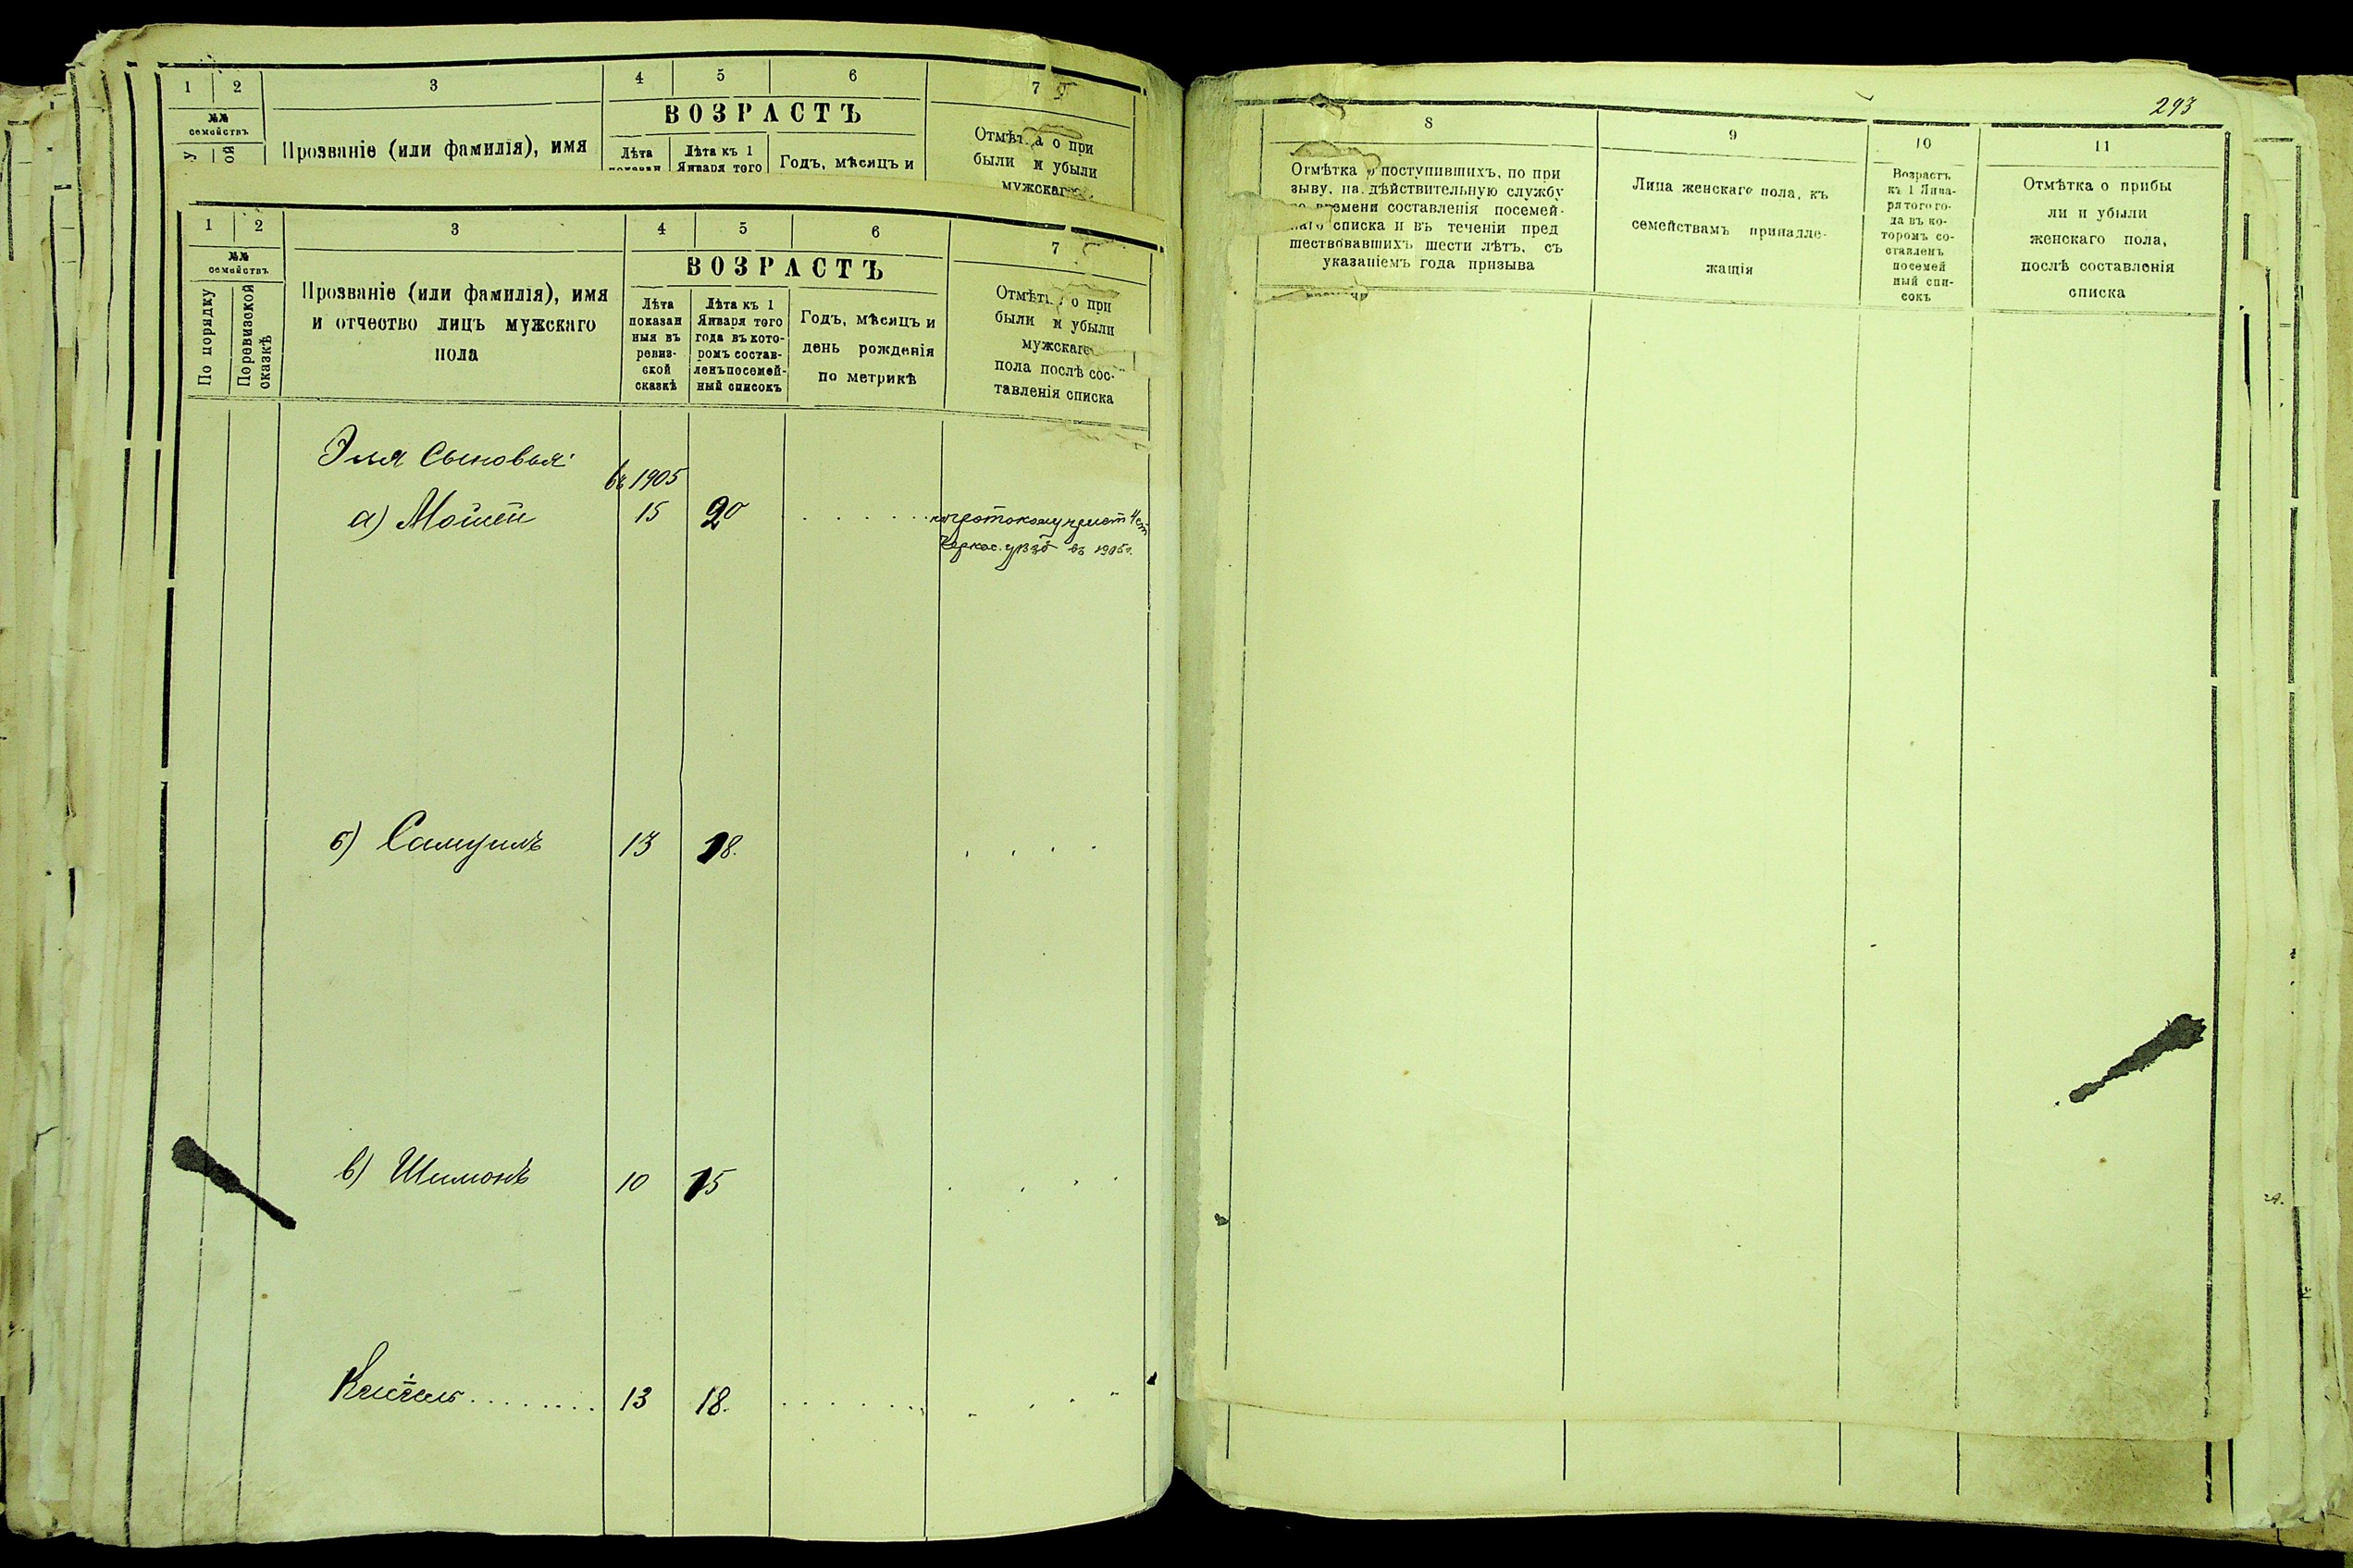 1 2 3 4 5 6 7
№№ семействъ
Прозваніе (или фамилія), имя
ВОЗРАСТЪ
Лѣта
Лѣта къ 1
Января того
Годъ, мѣсяцъ и
о при
были и убыли
1 2 3 4 5 6 7
№№ семействъ
По порядку
По ревизской сказкѣ
Прозваніе (или фамилія), имя
и отчество лицъ мужскаго
пола
ВОЗРАСТЪ
Лѣта
показан
ныя въ
ревиз-
ской
сказкѣ
Лѣта къ 1
Января того
года въ кото-
ромъ состав-
ленъ посемей-
ный списокъ
Годъ, мѣсяцъ и
день рожденія
по метрикѣ
о при
были и убыли
мужскаго
пола послѣ сос-
тавленія списка
Эля Сыновья:
въ 1905
а) Мошей 15 20
Черкас. въ 1905 г.
б) Самуилъ 13 18.
в) Шимонъ 10 15
13 18.
293
8 9 10 11
Отмѣтка о поступившихъ, по при
зыву, на дѣйствительную службу
времени составленія посемей-
списка и въ теченіи пред
шествовавшихъ шести лѣтъ, съ
указаніемъ года призыва
Лица женскаго пола, къ
семействамъ принадле-
жащія
Возрастъ
къ 1 Янва-
ря того го-
да въ ко-
торомъ со-
ставленъ
посемей
ный спи-
сокъ
Отмѣтка о прибы
ли и убыли
женскаго пола,
послѣ составленія
списка